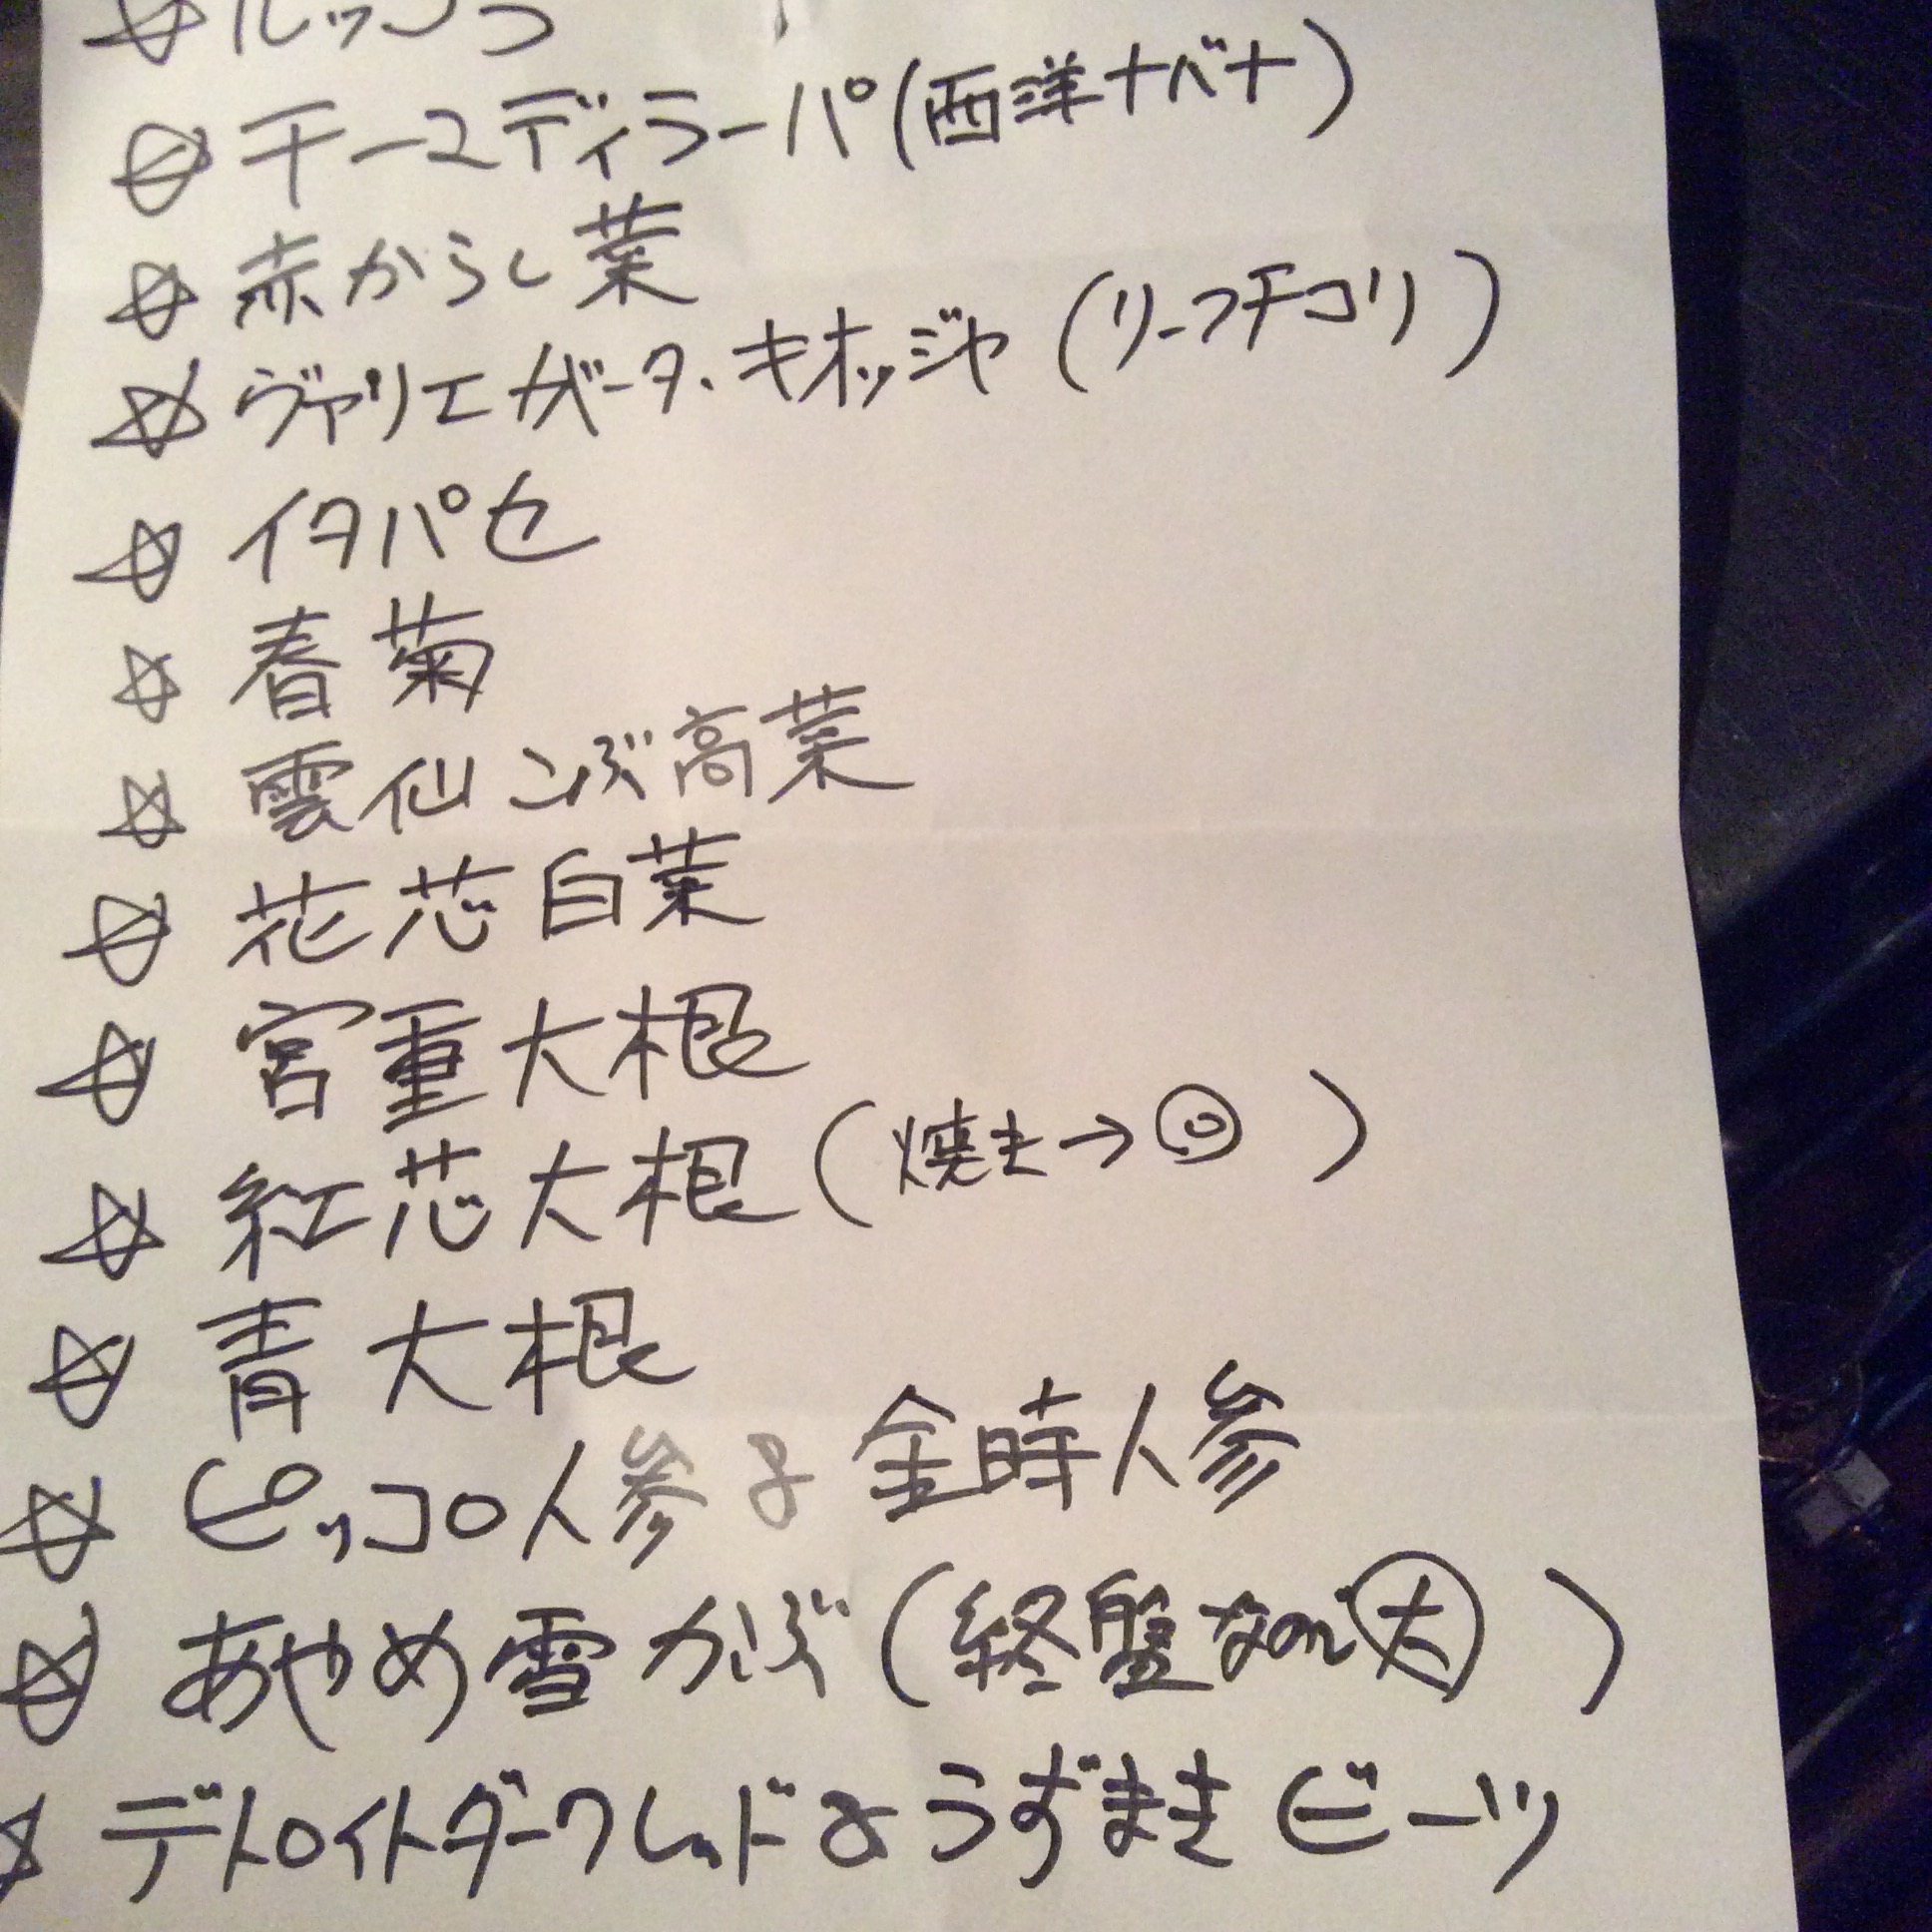 ☆ ルッコラ
☆ チーマディラーパ(西洋ナバナ)
☆ 赤からし菜
☆ ヴァリエガータ・キオッジャ (リーフチコリ)
☆ イタパセ
☆ 春菊
☆ 雲仙こぶ高菜
☆ 花芯白菜
☆ 宮重大根
☆ 紅芯大根 (焼き→◎)
☆ 青大根
☆ ピッコロ人参 & 金時人参
☆ あやめ雪かぶ (終盤なので大)
☆ デトロイトダークレッド & うずまきビーツ